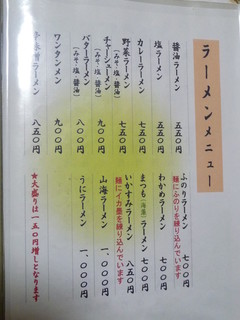 ラーメンメニュー
醤油ラーメン 五五〇円
塩ラーメン 五五〇円
カレーラーメン 七五〇円
野菜ラーメン 七五〇円
(みそ・塩・醤油)
チャーシューメン 九〇〇円
(みそ・塩・醤油)
バターラーメン 八〇〇円
(みそ・塩・醤油)
ワンタンメン 九〇〇円
味噌ラーメン 八五〇円
ふのりラーメン 七〇〇円
麺にふのりを練り込んでいます
わかめラーメン 七〇〇円
まつも(海藻)ラーメン 七〇〇円
いかすみラーメン 八五〇円
麺にイカ墨を練り込んでいます
山海ラーメン 一、〇〇〇円
うにラーメン 一、〇〇〇円
★大盛りは一五〇円増しとなります